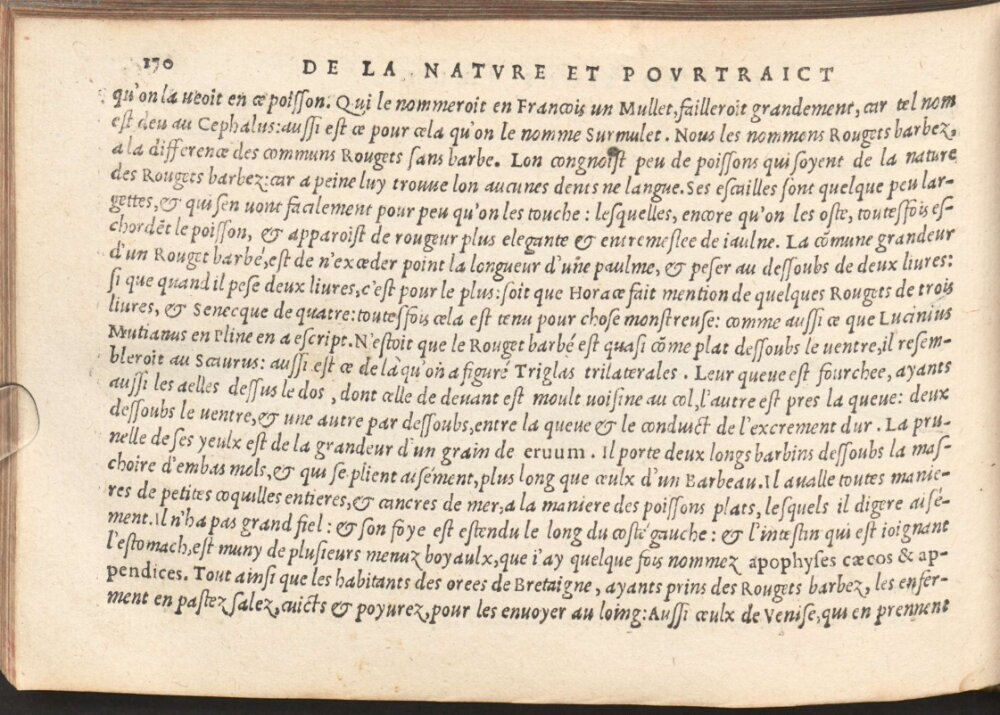 170 DE LA NATVRE ET POVRTRAICT
qu'on la veoit en ce poisson. Qui le nommeroit en Francois un Mullet, failleroit grandement, car tel nom
est deu au Cephalus: aussi est ce pour cela qu'on le nomme Surmulet. Nous les nommons Rougets barbez,
a la difference des communs Rougets sans barbe. Lon congnoist peu de poissons qui soyent de la nature
des Rougets barbez: car a peine luy trouve lon aucunes dents ne langue. Ses escailles sont quelque peu lar-
gettes, & qui s'en vont facilement pour peu qu'on les touche: lesquelles, encore qu'on les oste, toutesfois es-
chordēt le poisson, & apparoist de rougeur plus elegante & entremeslee de iaulne. La cōmune grandeur
d'un Rouget barbé, est de n'exceder point la longueur d'une paulme, & peser au dessoubs de deux livres:
si que quand il pese deux livres, c'est pour le plus: soit que Horace fait mention de quelques Rougets de trois
livres, & Senecque de quatre: toutesfois cela est tenu pour chose monstreuse: comme aussi ce que Lucinius
Mutianus en Pline en a escript. N'estoit que le Rouget barbé est quasi cōme plat dessoubs le ventre, il resem-
bleroit au Scaurus: aussi est ce de là qu'on a figuré Triglas trilaterales. Leur queue est fourchee, ayants
aussi les aelles dessus le dos, dont celle de devant est moult voisine au col, l'autre est pres la queue: deux
dessoubs le ventre, & une autre par dessoubs, entre la queue & le conduict de l'excrement dur. La pru-
nelle de ses yeulx est de la grandeur d'un grain de eruum. Il porte deux longs barbins dessoubs la mas-
choire d'embas mols, & qui se plient aisément, plus long que ceulx d'un Barbeau. Il avalle toutes manie-
res de petites coquilles entieres, & cancres de mer, a la maniere des poissons plats, lesquels il digere aisé-
ment. Il n'ha pas grand fiel: & son foye est estendu le long du costé gauche: & l'intestin qui est ioignant
l'estomach, est muny de plusieurs menuz boyaulx, que i'ay quelque fois nommez apophyses cæcos & ap-
pendices. Tout ainsi que les habitants des orees de Bretaigne, ayants prins des Rougets barbez, les enfer-
ment en pastez salez, cuicts & poyurez, pour les envoyer au loing: Aussi ceulx de Venise, qui en prennent